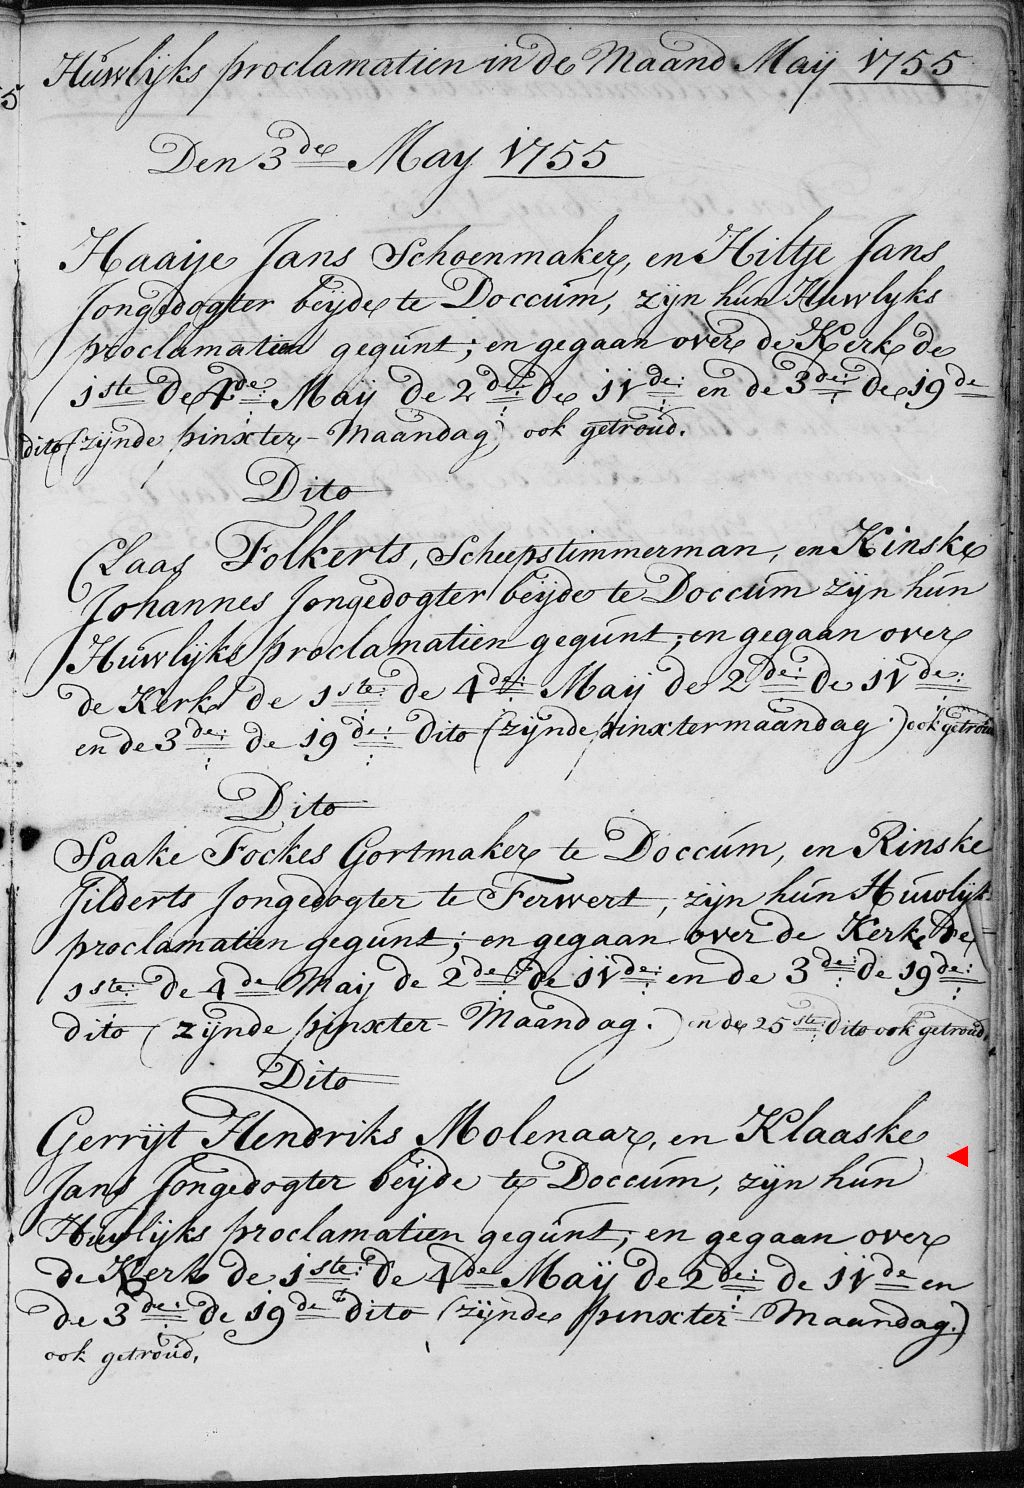 5
Huwlijks proclamatien in de Maand Maij 1755
Den 3de May 1755
Haaije Jans Schoenmaker, en Hiltje Jans
Jongedogter beijde te Doccum, zijn hun Huwlyks
proclamatien gegunt; en gegaan over de Kerk de
1ste de 4de: Maij de 2de: de 11de: en de 3de: de 19de
dito (zijnde pinxter-Maandag) ook getroud.
Dito
Claas Folkerts, Scheepstimmerman, en Kinske
Johannes Jongedogter beijde te Doccum zijn hun
Huwlijks proclamatien gegunt; en gegaan over
de Kerk de 1ste: de 4de: Maij de 2de: de 11de:
en de 3de: de 19de: dito (zijnde pinxtermaandag.) ook getroud
Dito
Saake Fockes Gortmaker te Doccum, en Rinske
Jilderts Jongedogter te Ferwert, zijn hun Huwlijks
proclamatien gegunt; en gegaan over de Kerk de
1ste: de 4de Maij de 2de: de 11de: en de 3de: de 19de:
dito (zijnde pinxter-Maandag.) en de 25ste: dito ook getroud.
Dito
Gerrijt Hendriks Molenaar, en Klaaske
Jans Jongedogter beijde te Doccum, zijn hun
Huwlijks proclamatien gegunt; en gegaan over
de Kerk de 1ste: de 4de Maij de 2de: de 11de en
de 3de: de 19de dito (zijnde pinxter Maandag.)
ook getroud.